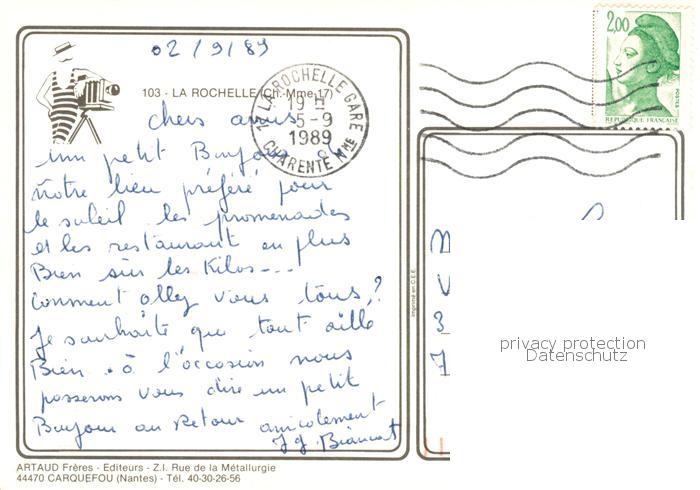 02/9/89
103 - LA ROCHELLE (Ch.-Mme-17)
17 LA ROCHELLE GARE
19 H
5-9
1989
CHARENTE MME
2,00
POSTES
REPUBLIQUE FRANÇAISE
chers amis
un petit Bonjour de
notre lieu préféré pour
le soleil les promenades
et les restaurant en plus
Bien sûr les Kilos---
comment allez vous tous?
Je souhaite que tout aille
Bien. à l'occasion nous
passerons vous dire un petit
Bonjour au Retour amicalement
JJ.
Imprimé en C.E.E.
M
V
3
7
privacy protection
Datenschutz
ARTAUD Frères - Editeurs - Z.I. Rue de la Métallurgie
44470 CARQUEFOU (Nantes) - Tél. 40-30-26-56